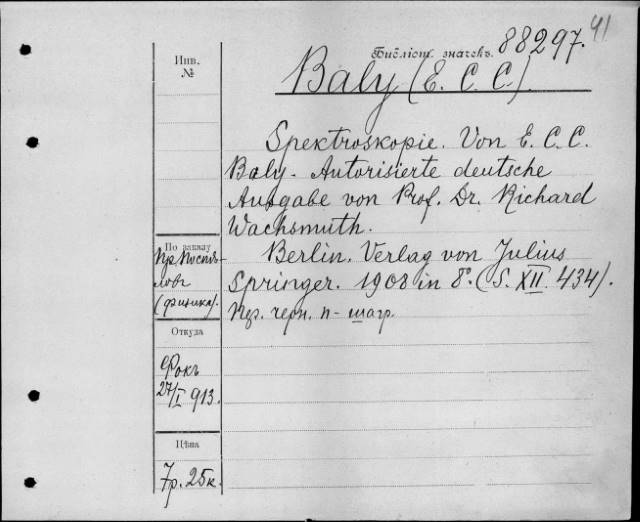 41
Инв.
№
Библіот. значекъ. 88297.
Baly (E. C. C.)
Spektroskopie. Von E. C. C.
Baly. Autorisierte deutsche
Ausgabe von Prof. Dr. Richard
Wachsmuth.
Berlin. Verlag von Julius
Springer. 1908 in 8°. (S. XII. 434).
черн. п-шагр.
По заказу
Пр. Поспѣ-
ловъ
(физика).
Откуда
Фокъ
27/I 913.
Цѣна
7р. 25к.